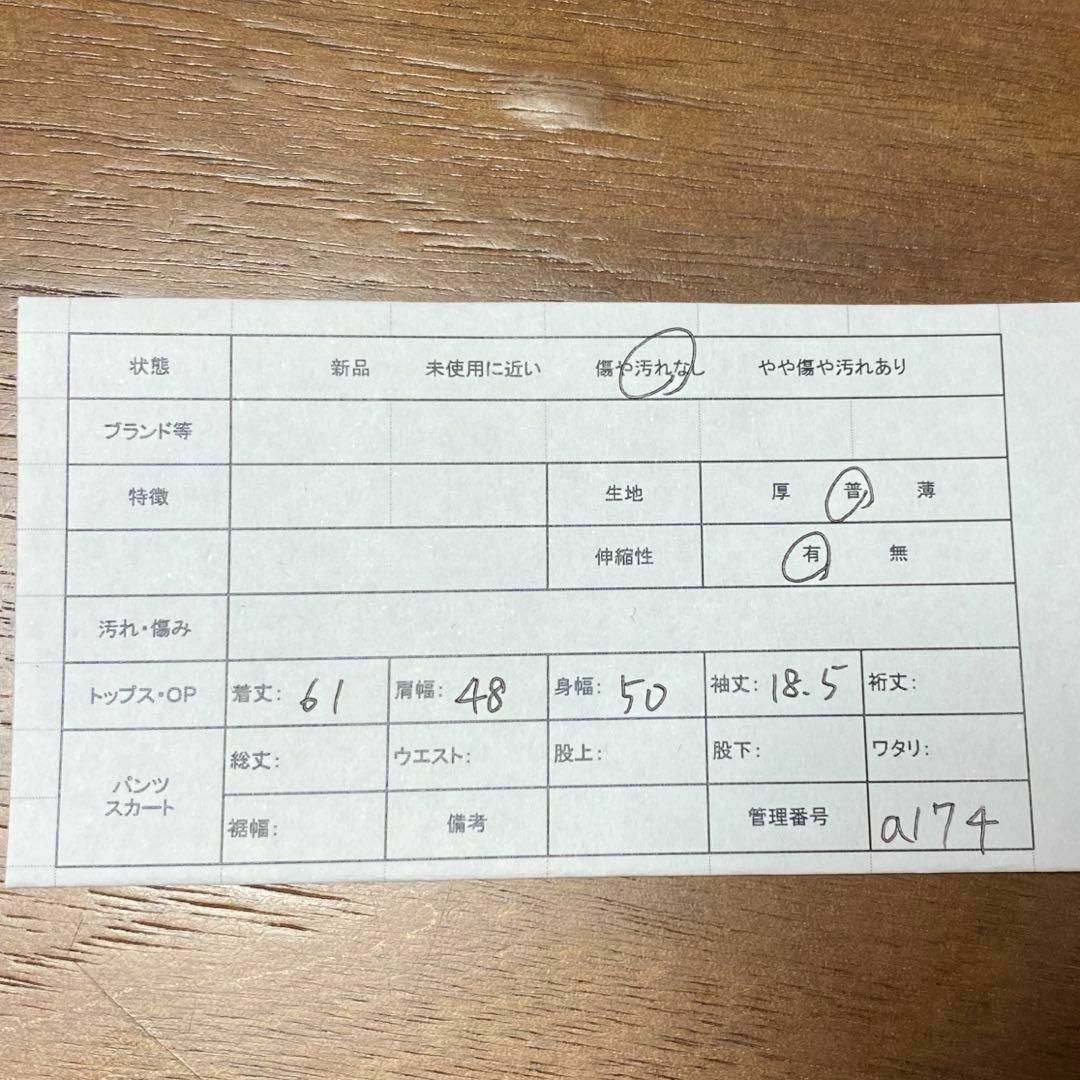 状態 新品 未使用に近い 傷や汚れなし やや傷や汚れあり
ブランド等
特徴 生地 厚 普 薄
伸縮性 有 無
汚れ・傷み
トップス・OP 着丈: 61 肩幅: 48 身幅: 50 袖丈: 18.5 裄丈:
パンツ
スカート
総丈: ウエスト: 股上: 股下: ワタリ:
裾幅: 備考 管理番号 a174